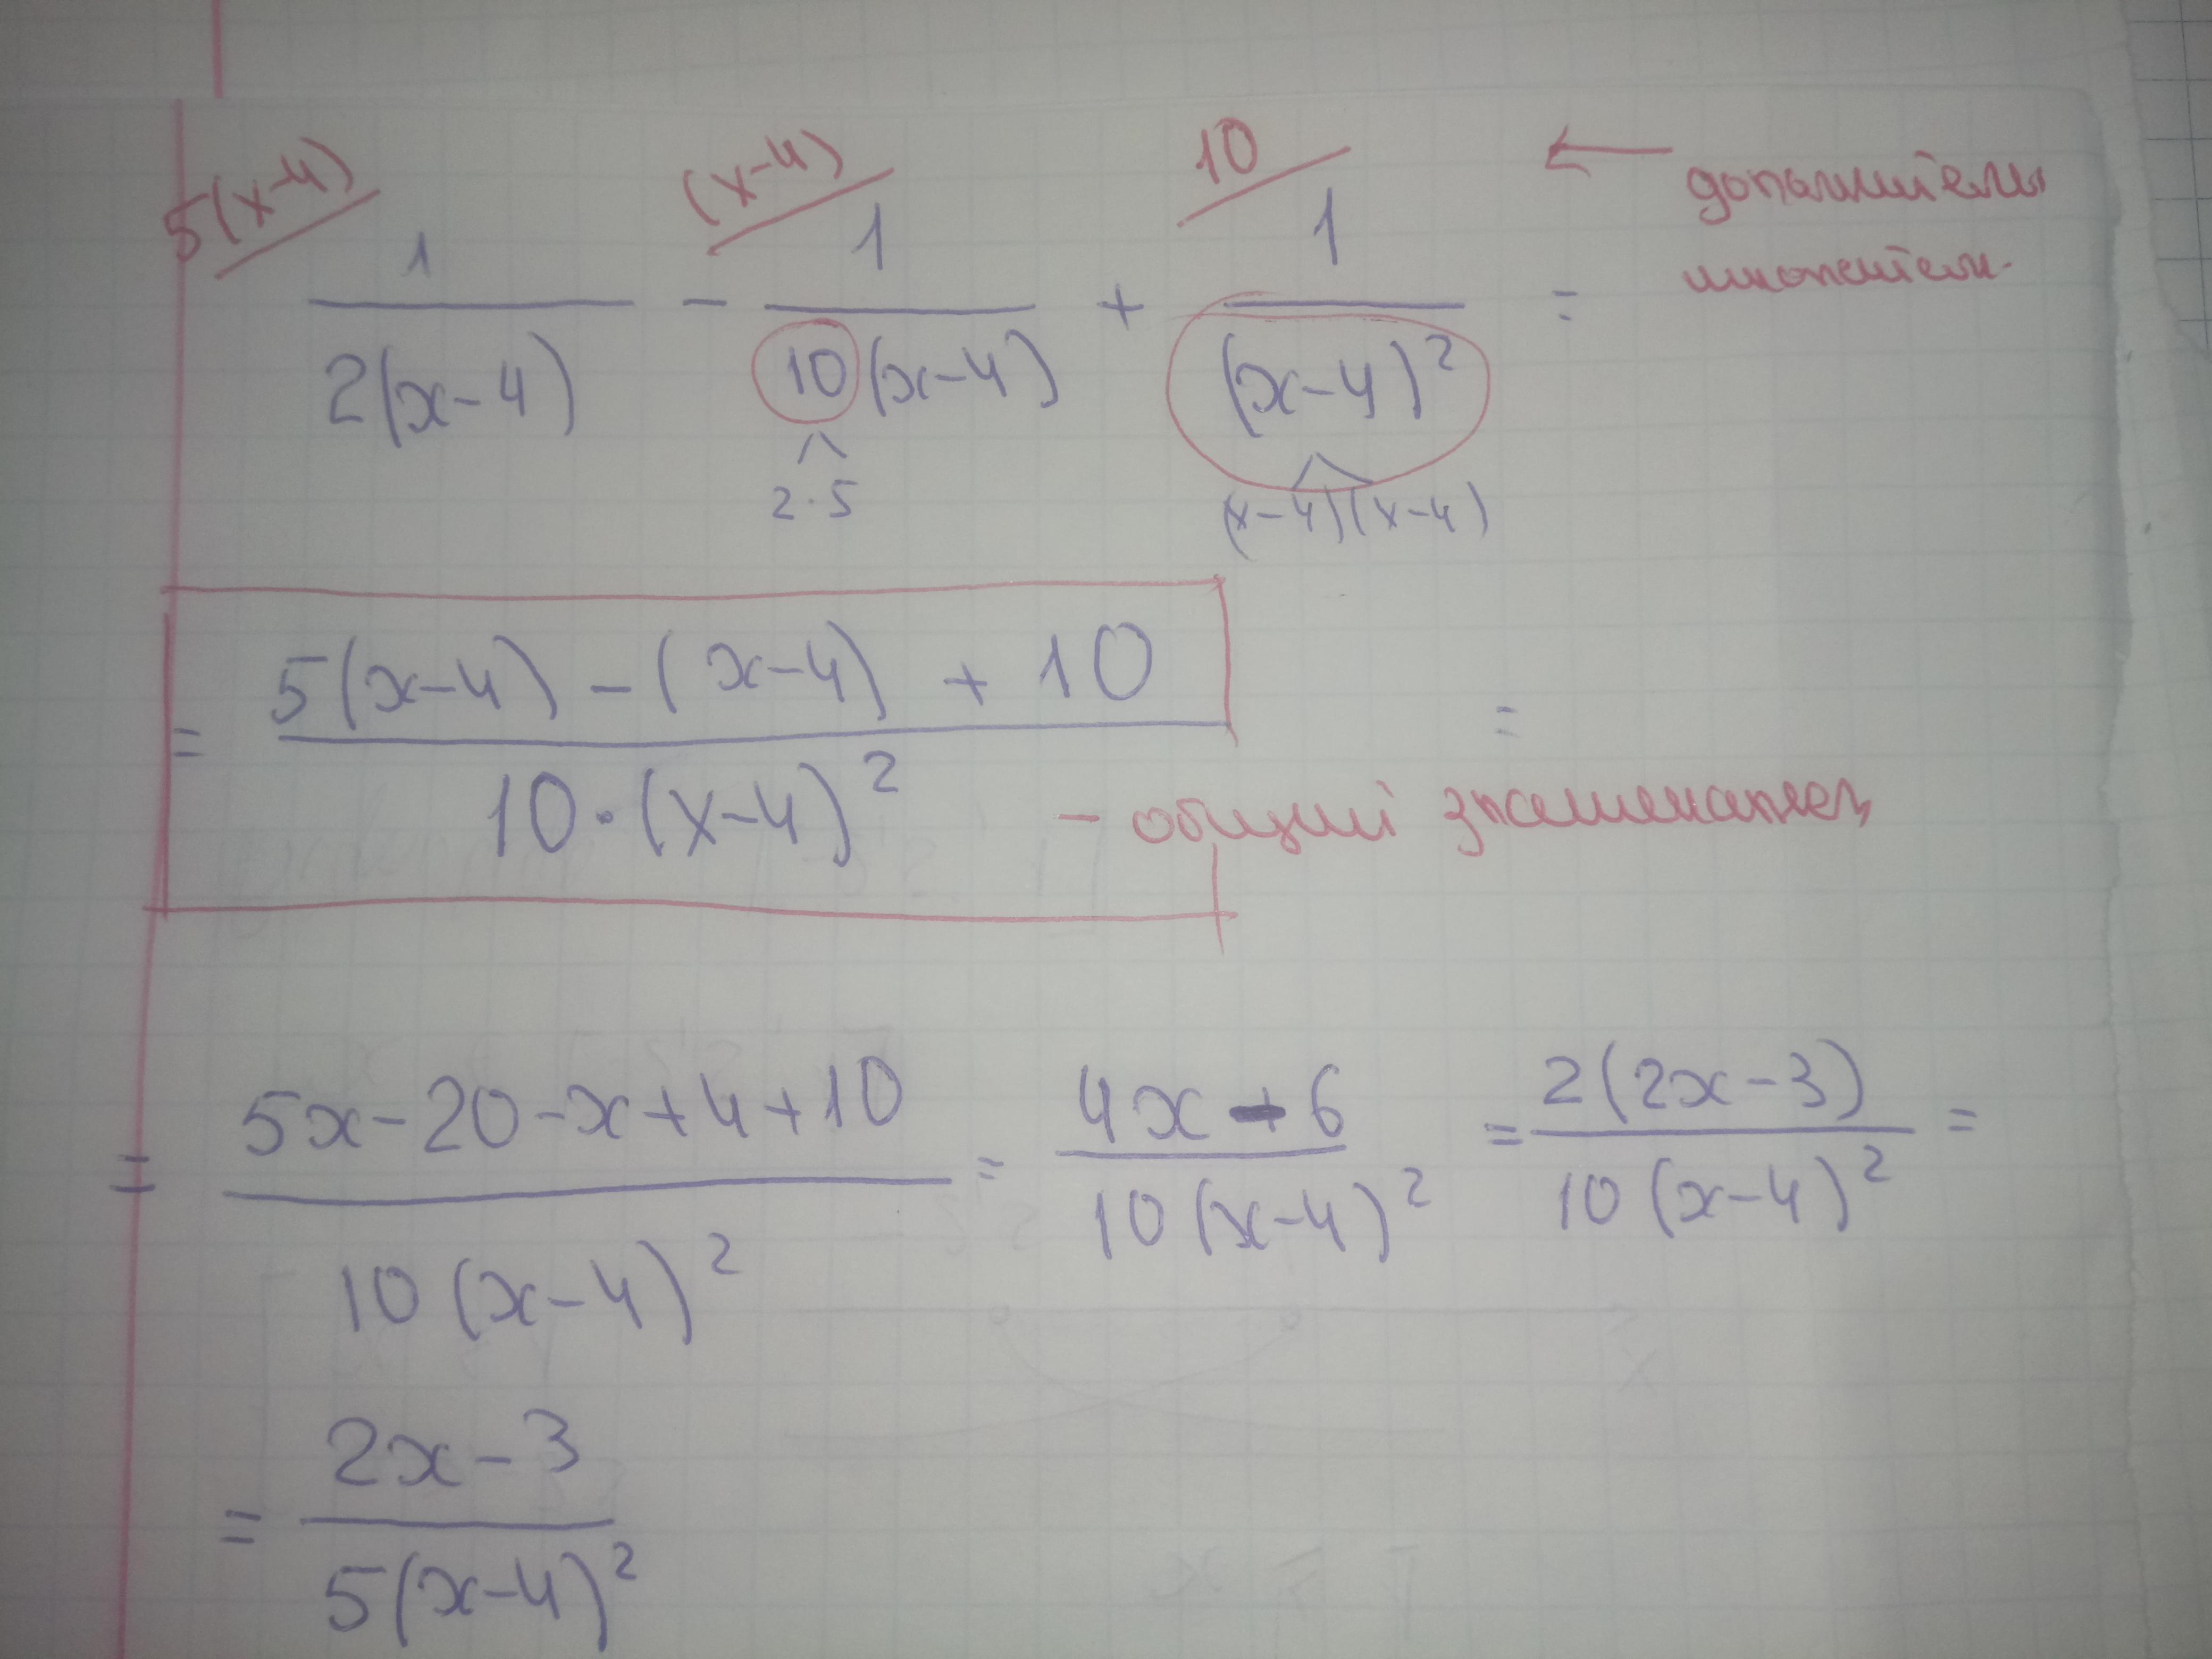 5(x-4) (x-4) 10 ← дополнители
множители
1/2(x-4) - 1/10(x-4) + 1/(x-4)² =
2·5 (x-4)(x-4)
= 5(x-4) - (x-4) + 10 / 10·(x-4)² =
- общий знаменатель
= 5x-20-x+4+10 / 10(x-4)² = 4x-6 / 10(x-4)² = 2(2x-3) / 10(x-4)² =
= 2x-3 / 5(x-4)²